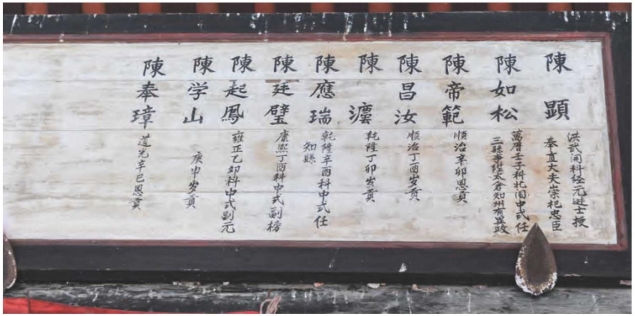 陳顕
洪武間科經元進士授
奉直大夫崇祀忠臣
陳如松
萬曆壬子科北闱中式任
太倉知州有異政
陳帝範
順治辛卯恩貢
陳昌汝
順治丁酉歲貢
陳澐
乾隆丁卯歲貢
陳應瑞
乾隆辛酉科中式任
知縣
陳廷璧
康熙丁酉科中式副榜
陳起鳳
雍正乙卯科中式副元
陳学山
庚申岁貢
陳奉璋
道光辛巳恩貢